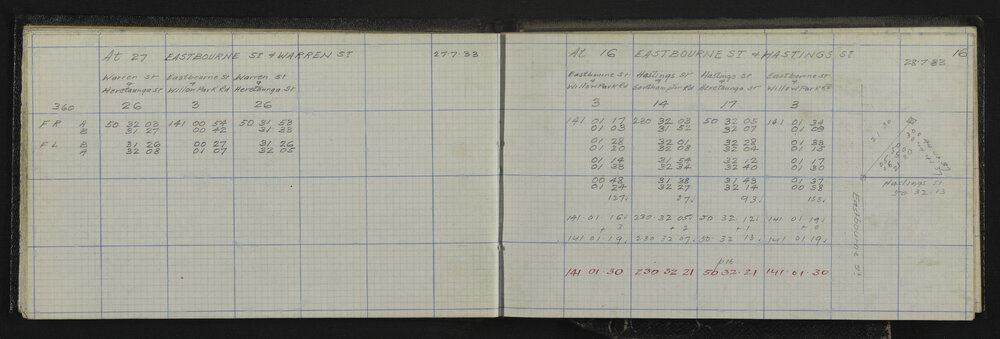 At 27 EASTBOURNE ST & WARREN ST 27.7.33
Warren St Eastbourne St Warren St
& & &
Heretaunga St Willow Park Rd Heretaunga St
360 26 3 26
FR A 50 32 03 141 00 54 50 31 53
B 31 27 00 42 31 33
FL B 31 26 00 27 31 26
A 32 08 01 07 32 05
At 16 EASTBOURNE ST & HASTINGS ST 16
28.7.33
Eastbourne St Hastings St Hastings St Eastbourne St
& & & &
Willow Park Rd Southampton Rd Heretaunga St Willow Park Rd
3 14 17 3
141 01 17 230 32 03 50 32 05 141 01 34
01 03 31 52 32 07 01 09
01 28 32 01 32 28 01 33
01 20 32 08 32 04 01 15
01 14 31 54 32 12 01 17
01 33 32 34 32 40 01 30
00 48 31 38 31 43 01 37
01 24 32 27 32 14 00 38
127. 37. 93. 153.
141.01.16. 230.32.05. 50 32 12. 141 01 19.
+ 3 + 2 + 1 + 0
141 01.19. 230.32.07. 50 32 13. 141 01 19.
p16
141.01.30 230.32.21 50.32.21 141.01.30
21 30
Hastings St
50 32 13
Eastbourne St